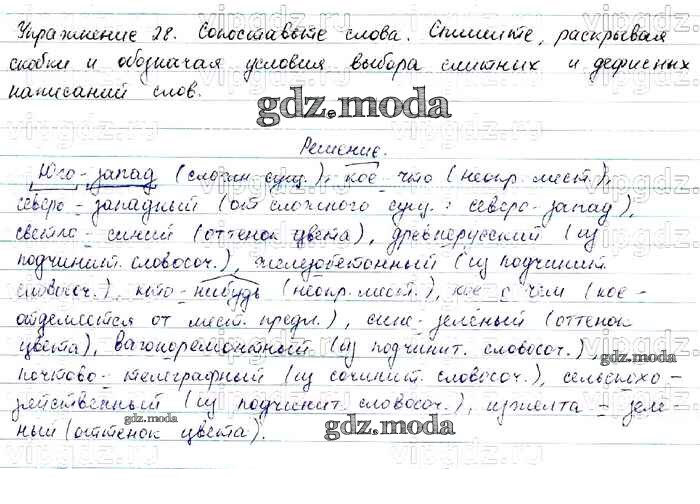 Упражнение 28. Сопоставьте слова. Спишите, раскрывая
скобки и обозначая условия выбора слитных и дефисных
написаний слов.
gdz.moda
Решение.
Юго-запад (сложн. сущ.), кое-что (неопр. мест.),
северо-западный (от сложного сущ.: северо-запад),
светло-синий (оттенок цвета), древнерусский (из
подчинит. словосоч.), железобетонный (из подчинит.
словосоч.), кто-нибудь (неопр. мест.), кое с чем (кое-
отделяется от мест. предл.), сине-зелёный (оттенок
цвета), вагоноремонтный (из подчинит. словосоч.),
gdz.moda
почтово-телеграфный (из сочинит. словосоч.), сельскохо-
зяйственный (из подчинит. словосоч.), изжелта-зелё-
ный (оттенок цвета).
gdz.moda
gdz.moda